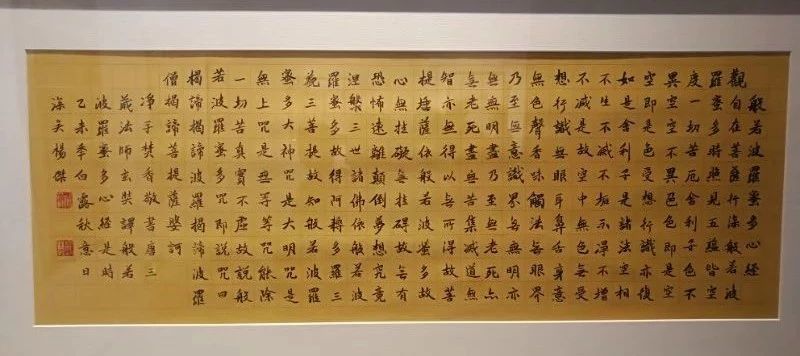 般若波羅蜜多心經
觀自在菩薩行深般若波
羅蜜多時照見五蘊皆空
度一切苦厄舍利子色不
異空空不異色色即是空
空即是色受想行識亦復
如是舍利子是諸法空相
不生不滅不垢不淨不增
不減是故空中無色無受
想行識無眼耳鼻舌身意
無色聲香味觸法無眼界
乃至無意識界無無明亦
無無明盡乃至無老死亦
無老死盡無苦集滅道無
智亦無得以無所得故菩
提埵薩依般若波蜜多故
心無挂礙無挂碍故無有
恐怖遠離顛倒夢想究竟
涅槃三世諸佛依般若波
羅蜜多故得阿耨多羅三
藐三菩提故知般若波羅
蜜多大神咒是大明咒是
無上咒是無等等咒能除
一切苦真實不虛故說般
若波羅蜜多咒即說咒曰
揭諦揭諦波羅揭諦波羅
僧揭諦菩提薩婆訶
淨手焚香敬書唐三
藏法師玄奘譯般若
波羅蜜多心經是時
乙未年白露秋意日
楊傑